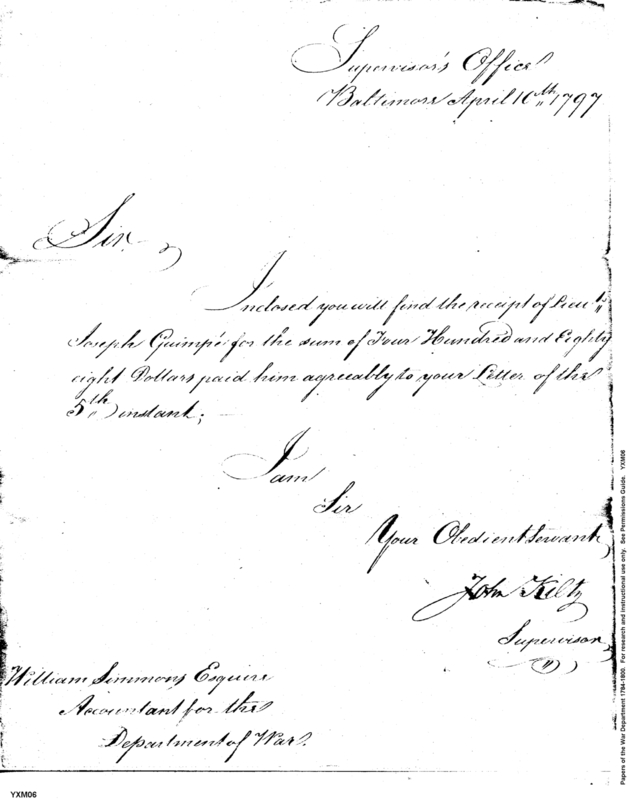 Supervisor's Office
Baltimore April 10th 1797
Sir
Inclosed you will find the receipt of Lieut
Joseph Guimpé for the sum of Four Hundred and Eighty
eight Dollars paid him agreeably to your Letter of the
5th instant;
I am
Sir
Your Obedient Servant
John Kilty
Supervisor
William Simmons Esquire
Accountant for the
Department of War.
YXM06
Papers of the War Department 1784-1800. For research and instructional use only. See Permissions Guide. YXM06